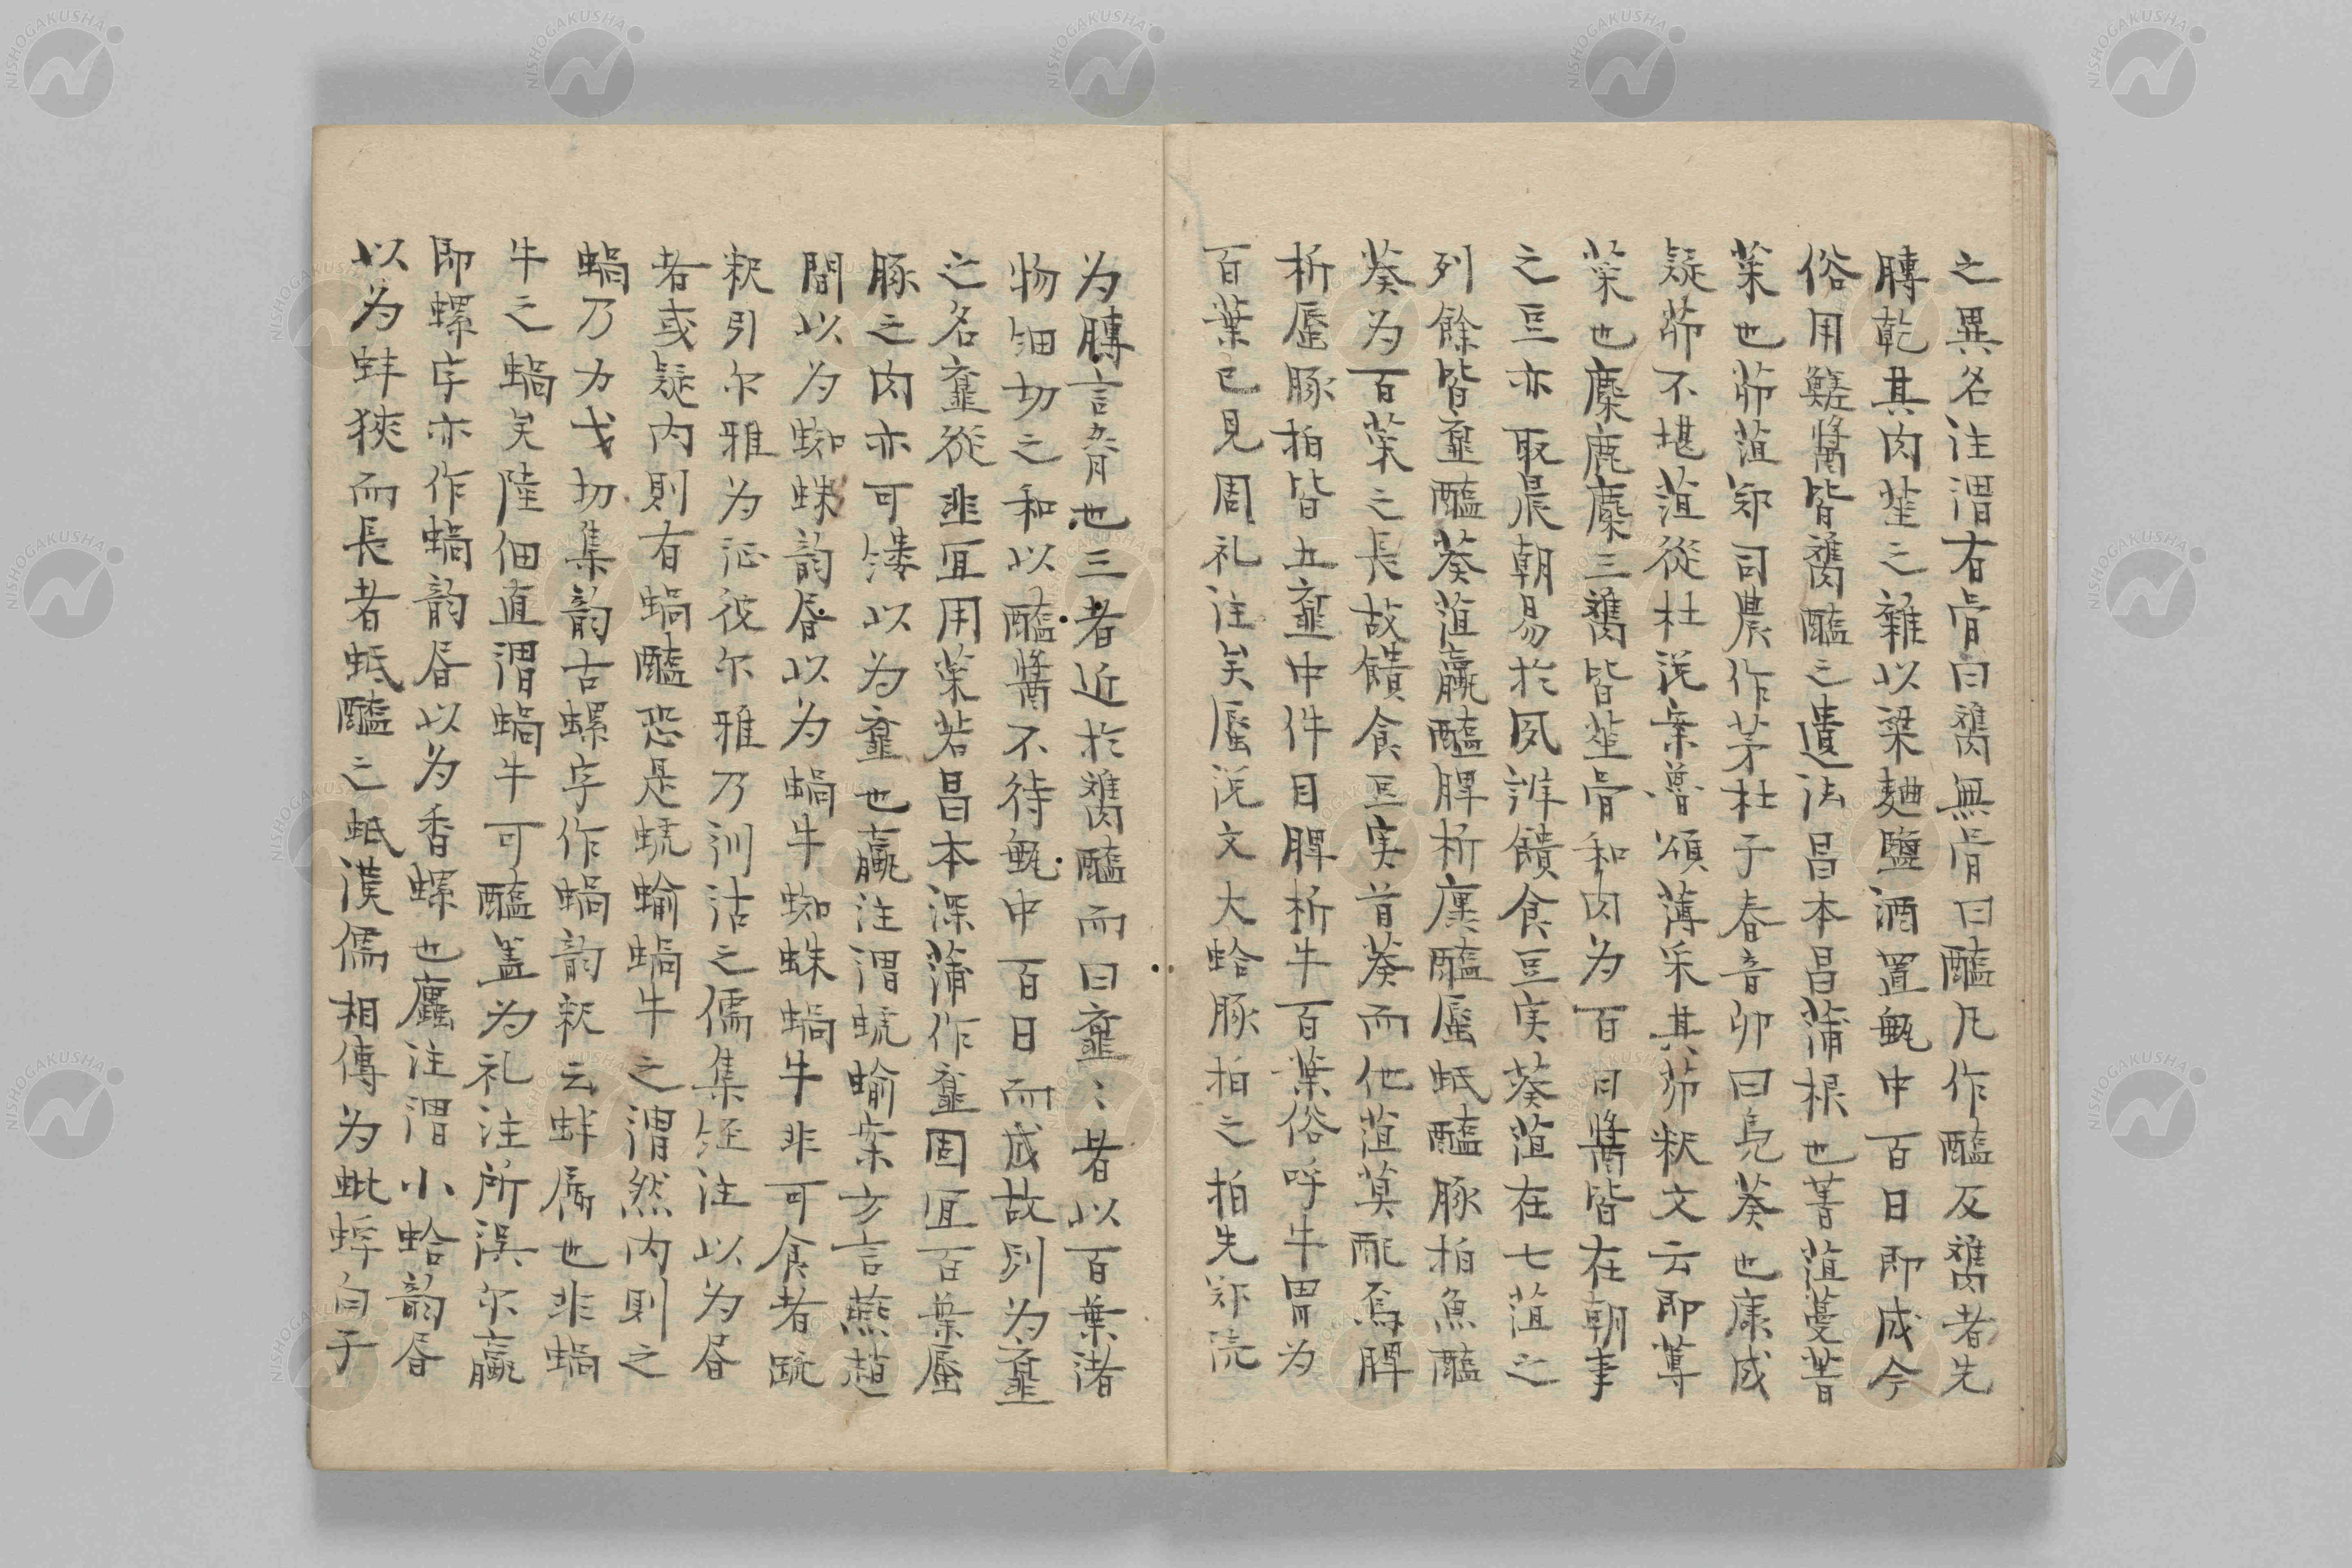 之異名注謂有骨曰臡無骨曰醢凡作醢及臡者先
膞乾其肉莝之雜以粱麹鹽酒置甀中百日即成今
俗用鹺醬皆臡醢之遺法昌本昌蒲根也菁菹蔓菁
菜也茆菹郑司農作茅杜子春音卯曰鳧葵也康成
疑茆不堪菹從杜説案魯頌薄采其茆釈文云即蓴
菜也麋鹿麇三臡皆莝骨和肉为百日醬皆在朝事
之豆亦取晨朝易於夙辨饋食豆実葵菹在七菹之
列餘皆齏醢葵菹蠃醢脾析蠯醢蜃蚳醢豚拍魚醢
葵为百菜之長故饋食豆実首葵而他菹莫配焉脾
析蜃豚拍皆五齏中件目脾析牛百葉俗呼牛胃为
百葉已見周礼注矣蜃説文大蛤豚拍之拍先郑読
为膞言脅也三者近於臡醢而曰齏〻者以百葉渚
物細切之和以醢醬不待甀中百日而成故列为齏
之名齏從韭宜用菜若昌本深蒲作齏固宜百葉蜃
豚之肉亦可縷以为齏也蠃注謂蚹蝓案方言燕趙
間以为蜘蛛韵㫺以为蝸牛蜘蛛蝸牛非可食者疏
釈引尔雅为证彼尔雅乃訓詁之儒集经注以为㫺
者或疑内則有蝸醢恐是蚹蝓蝸牛之謂然内則之
蝸乃力戈切集韵古螺字作蝸韵釈云蚌属也非蝸
牛之蝸矣陸佃直謂蝸牛可醢盖为礼注所误尔蠃
即螺字亦作蝸韵㫺以为香螺也蠯注謂小蛤韵㫺
以为蚌狹而長者蚳醢之蚳漢儒相傳为蚍蜉白子